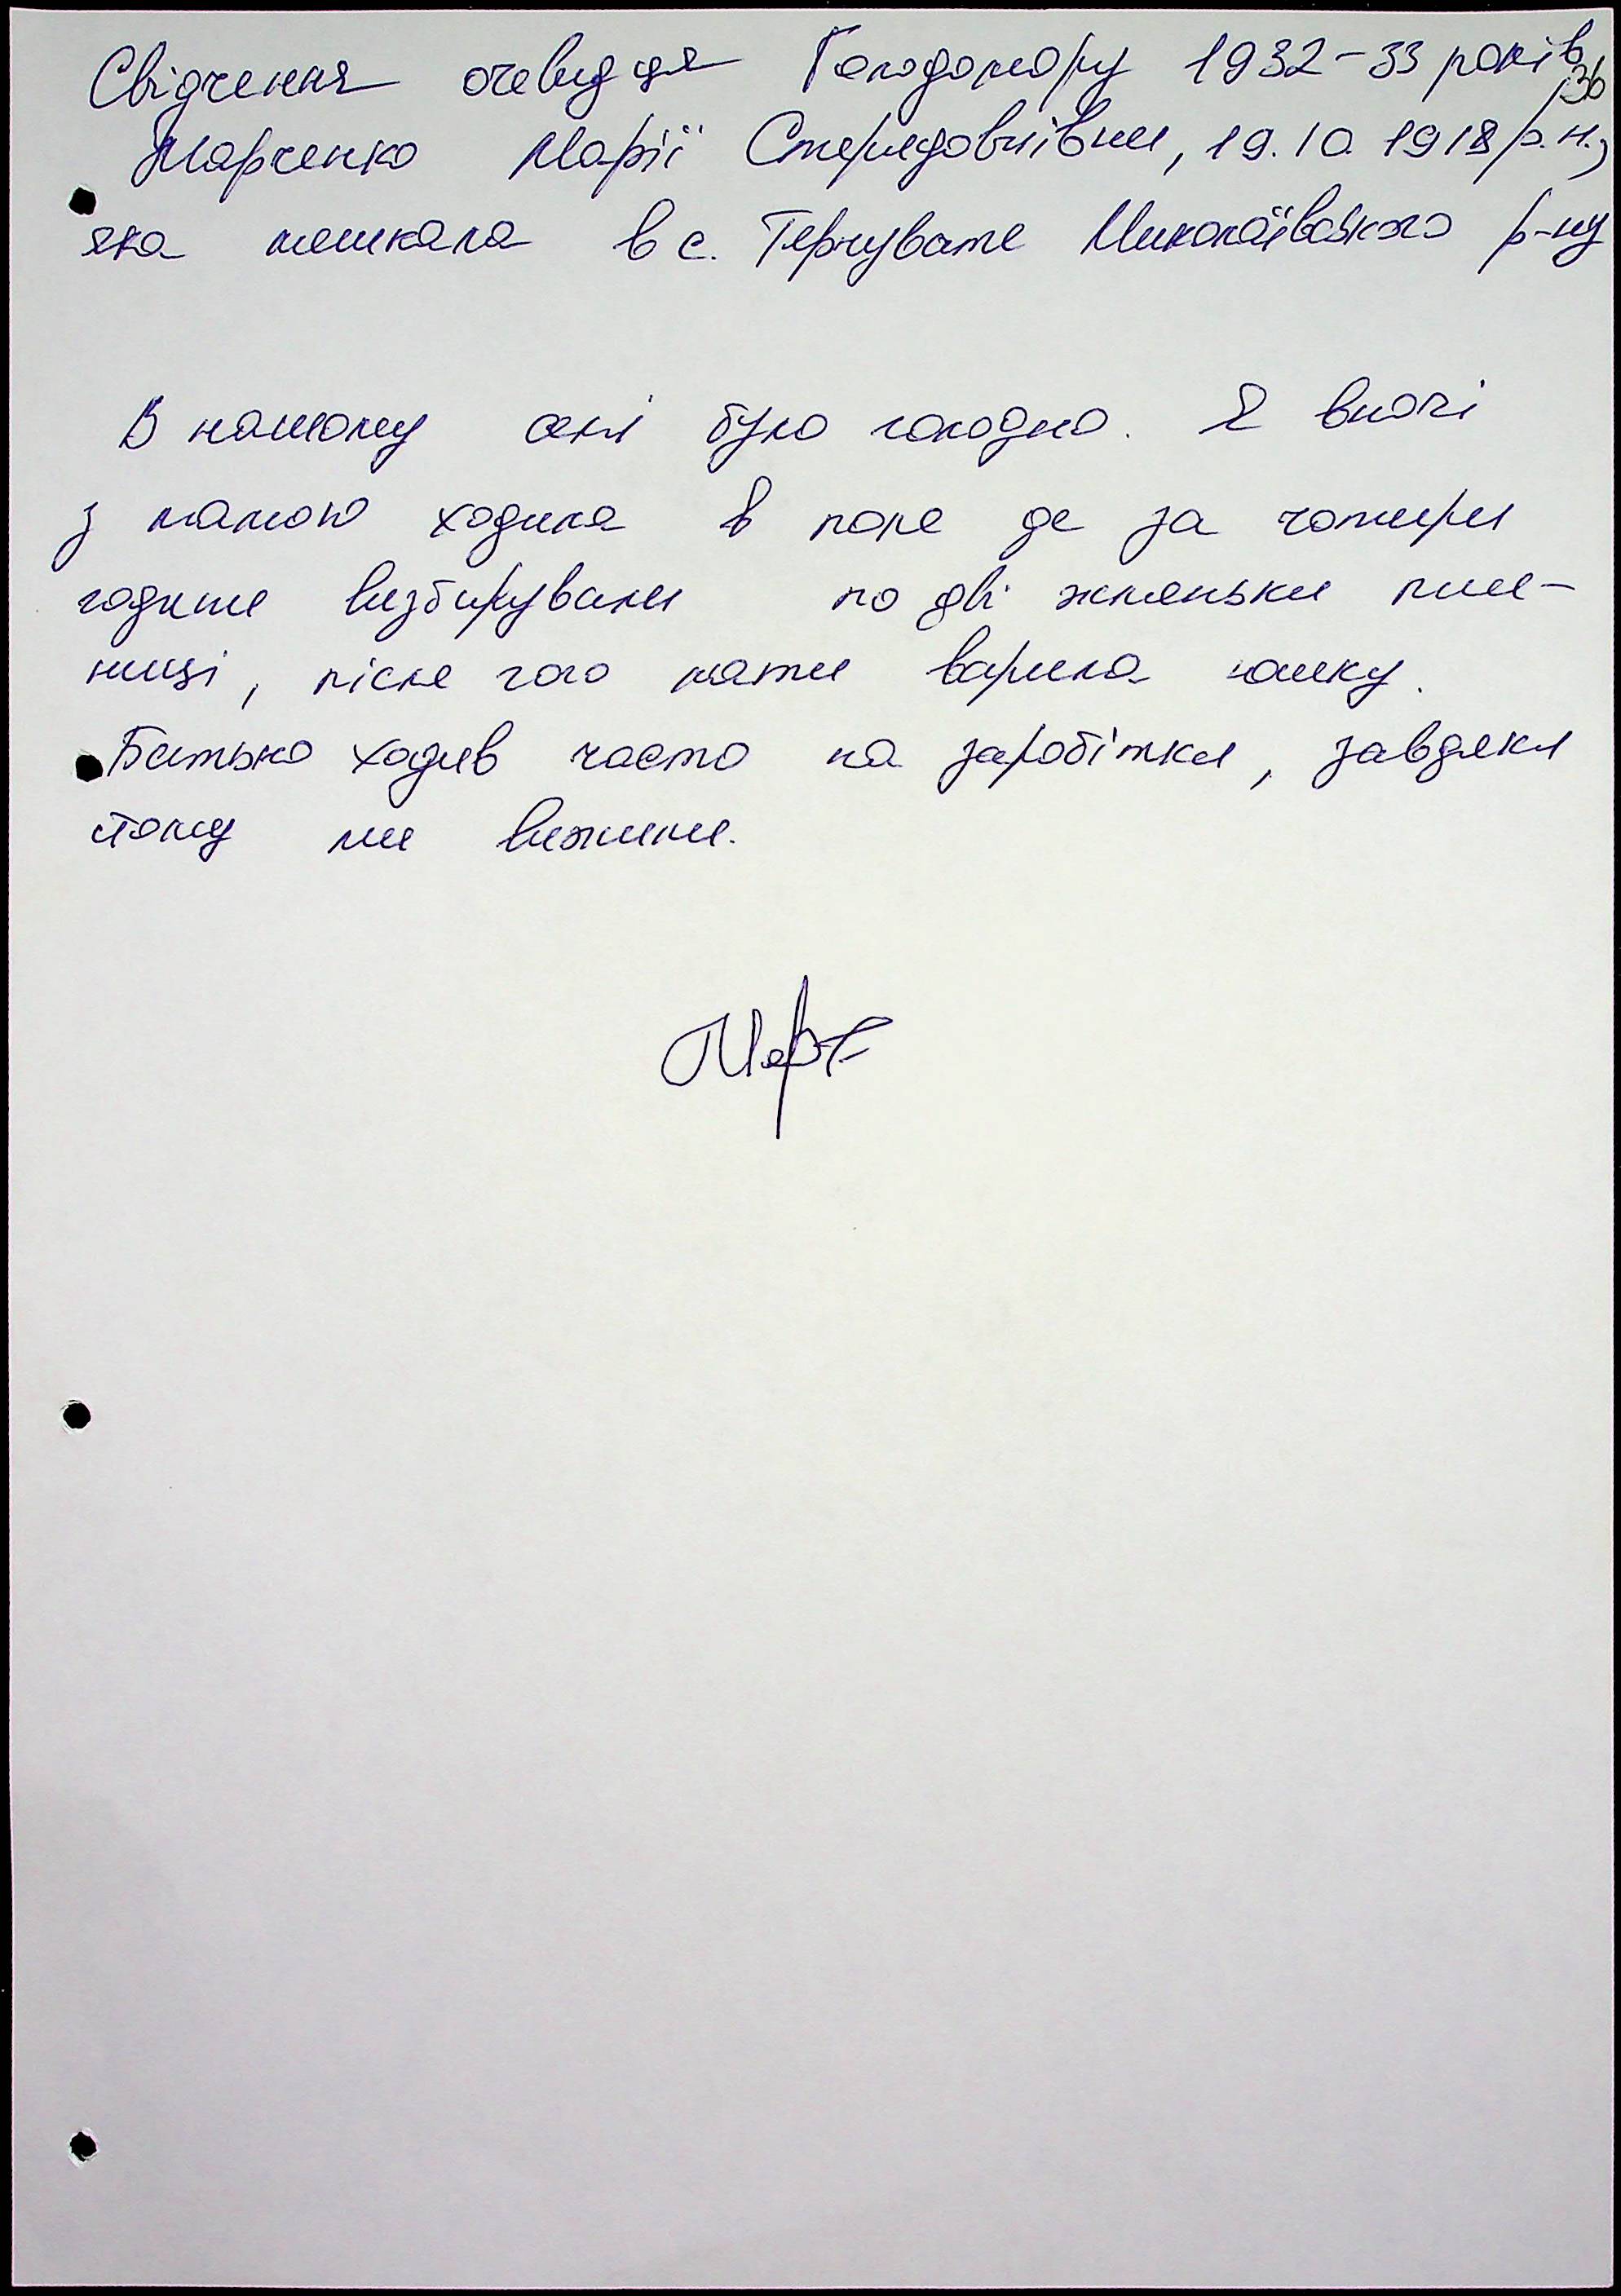 Свідчення очевидця Голодомору 1932-33 років
36
Марченко Марії Спиридовнівни, 19.10.1918 р.н.,
яка мешкала в с. Тернувате Миколаївського р-ну
В нашому селі було голодно. Я вночі
з мамою ходила в поле де за чотири
години визбирували по дві жменьки пше-
ниці, після чого мати варила юшку.
Батько ходив часто на заробітки, завдяки
цьому ми вижили.
Марч